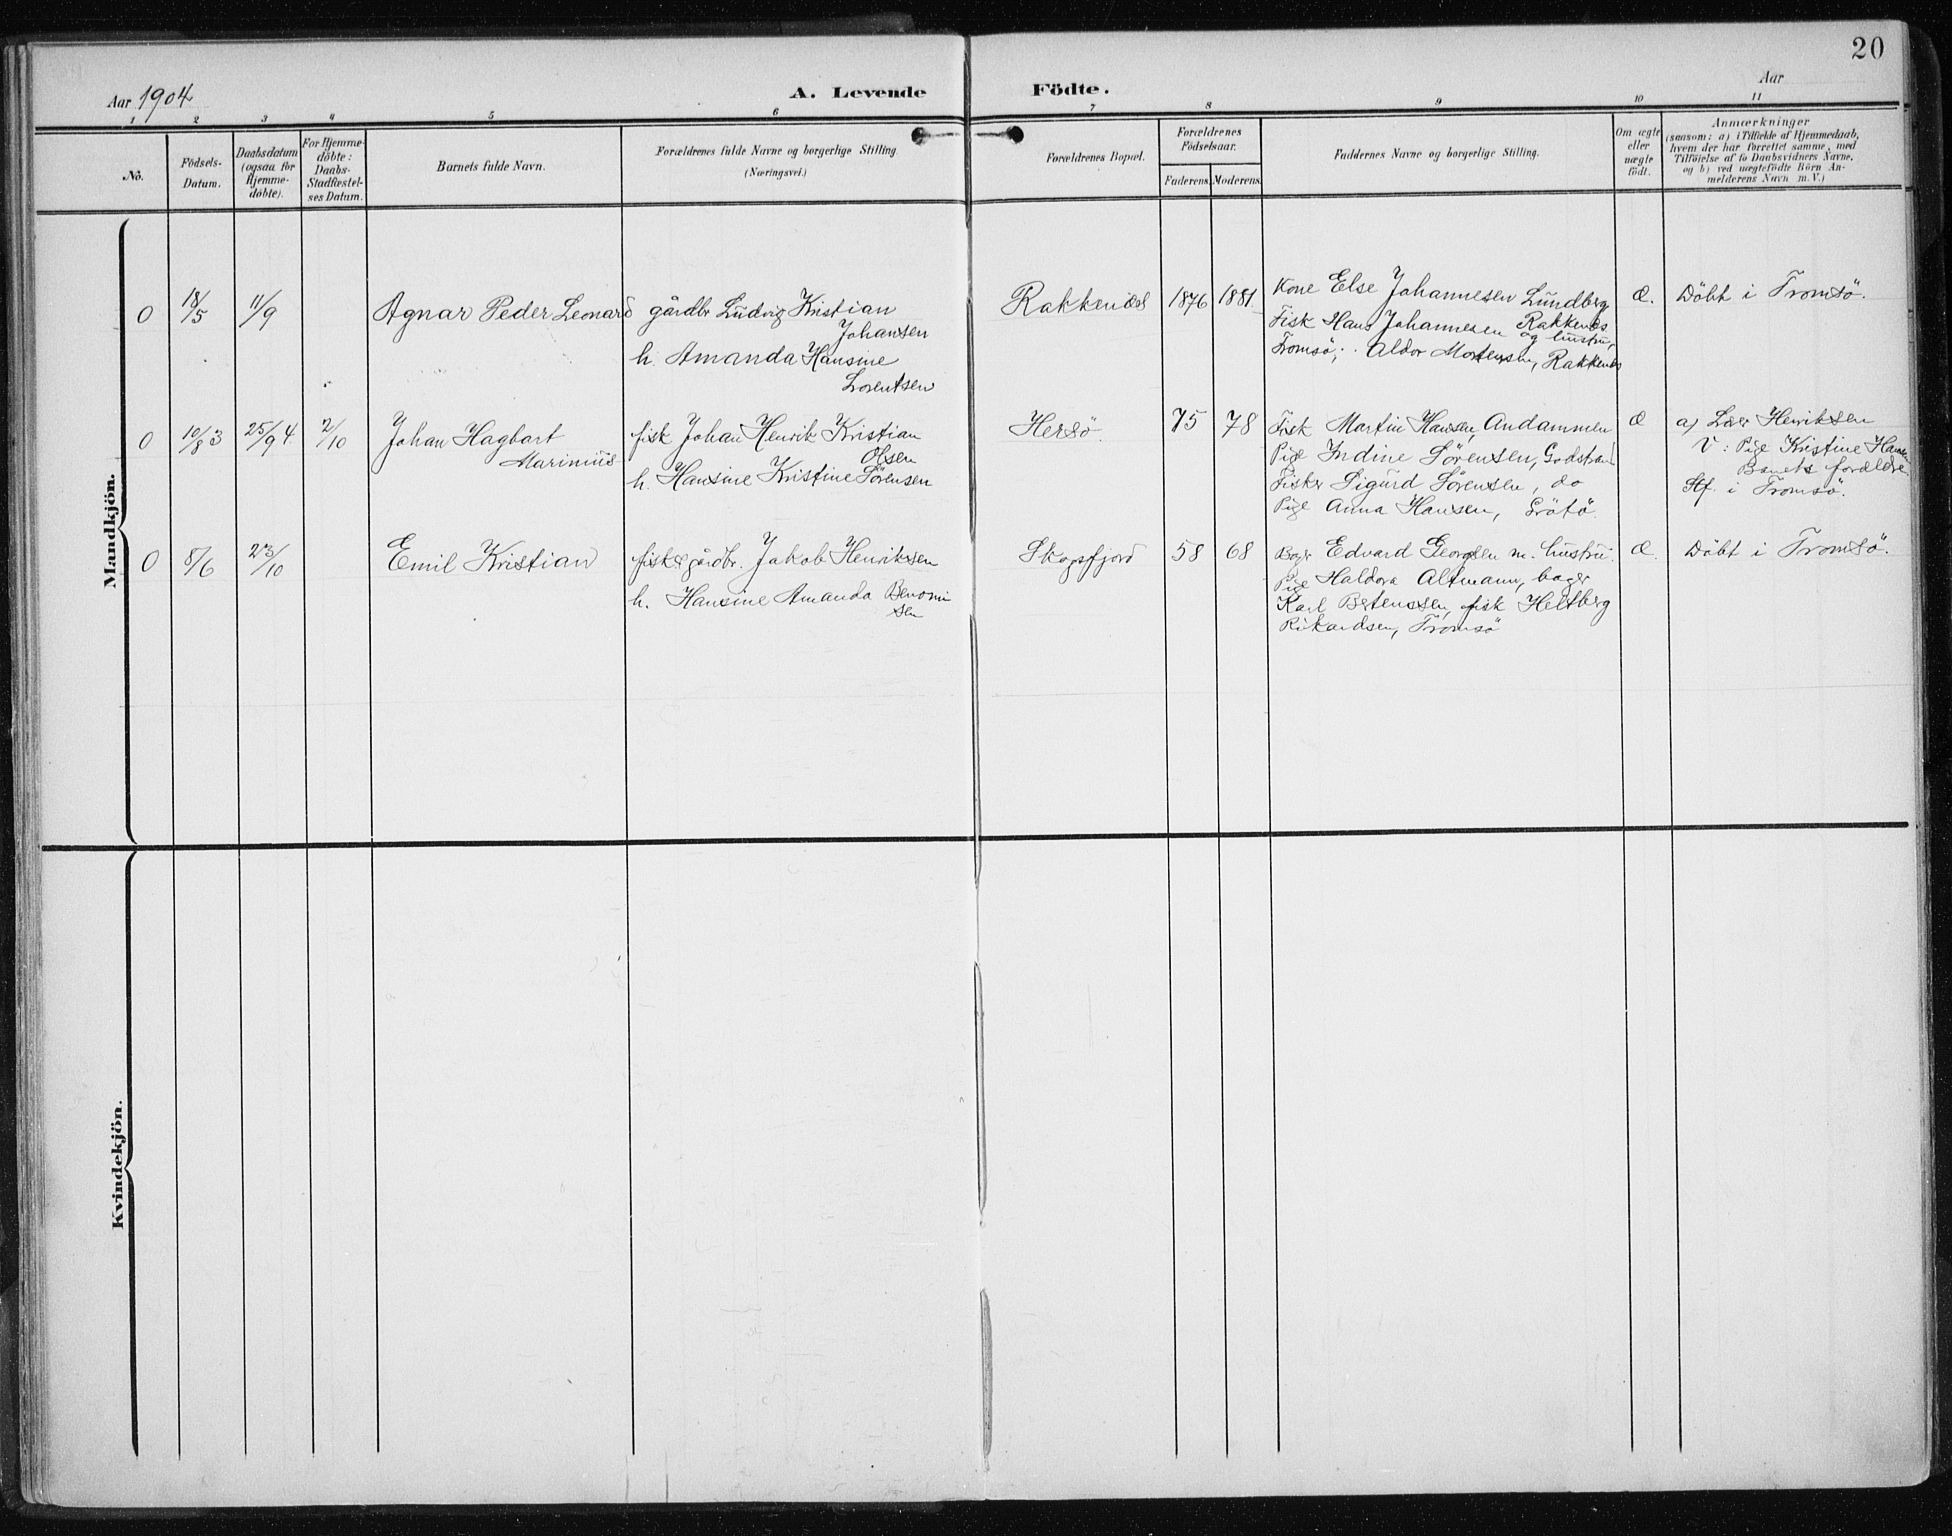 20
Aar 1904
A. Levende Födte.
Aar
1 2 3 4 5 6 7 8 9 10 11
No.
Födsels-
Datum.
Daabsdatum
(ogsaa for
Hjemme-
döbte).
For Hjemme-
döbte:
Daabs-
Stadfæstel-
ses Datum.
Barnets fulde Navn.
Forældrenes fulde Navne og borgerlige Stilling
(Næringsvei.)
Forældrenes Bopæl.
Forældrenes
Födselsaar.
Faderens. Moderens.
Faddernes Navne og borgerlige Stilling.
Om ægte
eller
uægte
födt.
Anmærkninger
(saasom: a) i Tilfælde af Hjemmedaab,
hvem der har forrettet samme, med
Tilföielse af to Daabsvidners Navne,
og b) ved uægtefödte Börn An-
melderens Navn m. V.)
Mandkjön.
0 18/5 11/9
Agnar Peder Leonard
gårdbr Ludvig Kristian
Johansen
h. Amanda Hansine
Lorentsen
Rakkenæs
1876 1881
Kone Else Johannesen Lundberg
Fisk Hans Johannesen Rakkenæs
og hustru,
Tromsö; Aldor Mortensen, Rakkenæs
Æ.
Döbt i Tromsö.
0 10/8 3 25/9 4 2/10
Johan Hagbart
Marinius
fisk Johan Henrik Kristian
Olsen
h. Hansine Kristine Sörensen
Hersö.
75 78
Fisk Martin Hansen, Andammen
Pige Indine Sörensen, Godstrand
Fisker Sigurd Sörensen, do
Pige Anna Hansen, Grötö
Æ
a) Lær Henriksen
V: Pige Kristine Hansen
Barnets forældre.
Stf. i Tromsö.
0 8/6 23/10
Emil Kristian
fisk & gårdbr. Jakob Henriksen
h. Hansine Amanda Benomi
sen
Skogsfjord
58 68
Bager Edvard Georgsen m. hustru.
Pige Haldora Altmann, bager
Karl Bertenssen, fisk Heltberg
Rikardsen, Tromsö
Æ.
Döbt i Tromsö.
Kvindekjön.